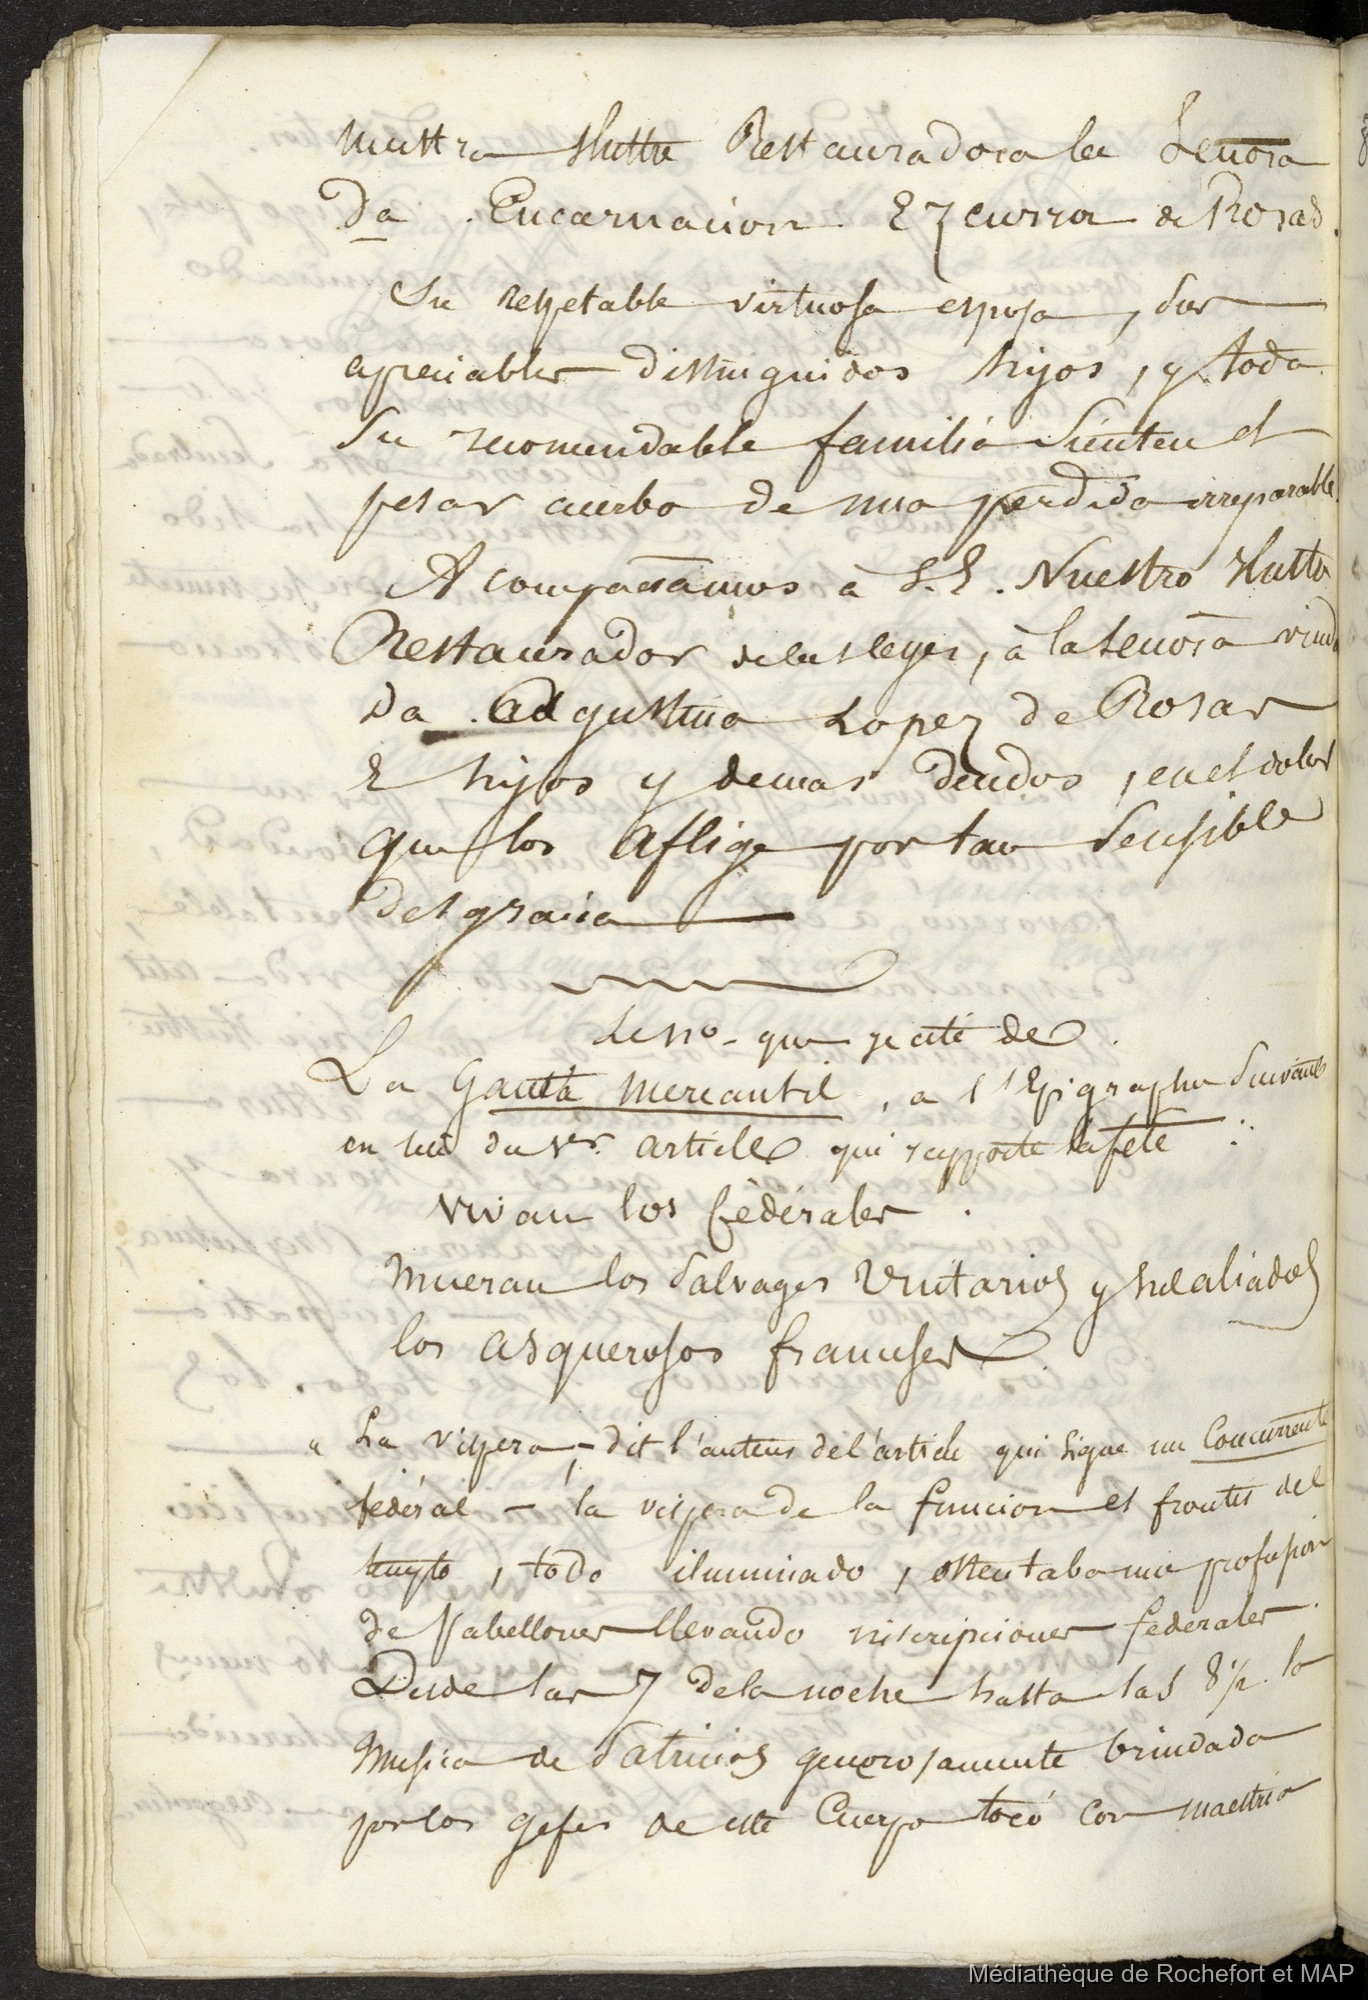 nuestra Ilustre Restauradora la Senora
Da. Encarnacion Ezcurra de Rosas.
Su respetable virtuosa esposa, sus
apreciables distinguidos hijos, y toda
su recomendable familia sienten el
pesar acerbo de una perdida irreparable.
Acompañamos à S.E. Nuestro Ilustre
Restaurador de las leyes, à la Senora viuda
Da. Adgustina Lopez de Rosas
E hijos y demas deudos, en el dolor
que los aflige por tan sensible
desgracia
Le no. que je cite de
La Gaceta Mercantil, a l'Epigraphe suivante
en tête du 1er. article qui rapporte la fête :
Vivan los fédérales.
Mueran los Salvages Unitarios y sus aliados
los asquerosos franceses.
" La vispera, - dit l'auteur de l'article qui signe un Concurrente
fédéral - la vispera de la funcion el frontis del
templo, todo iluminado, ostentaba una profusion
de Pabellones llevando inscripciones federales.
Desde las 7 de la noche hasta las 8 1/2. la
Musica de Patricios generosamente brindada
por los gefes de este Cuerpo tocó con maestria
Médiathèque de Rochefort et MAP